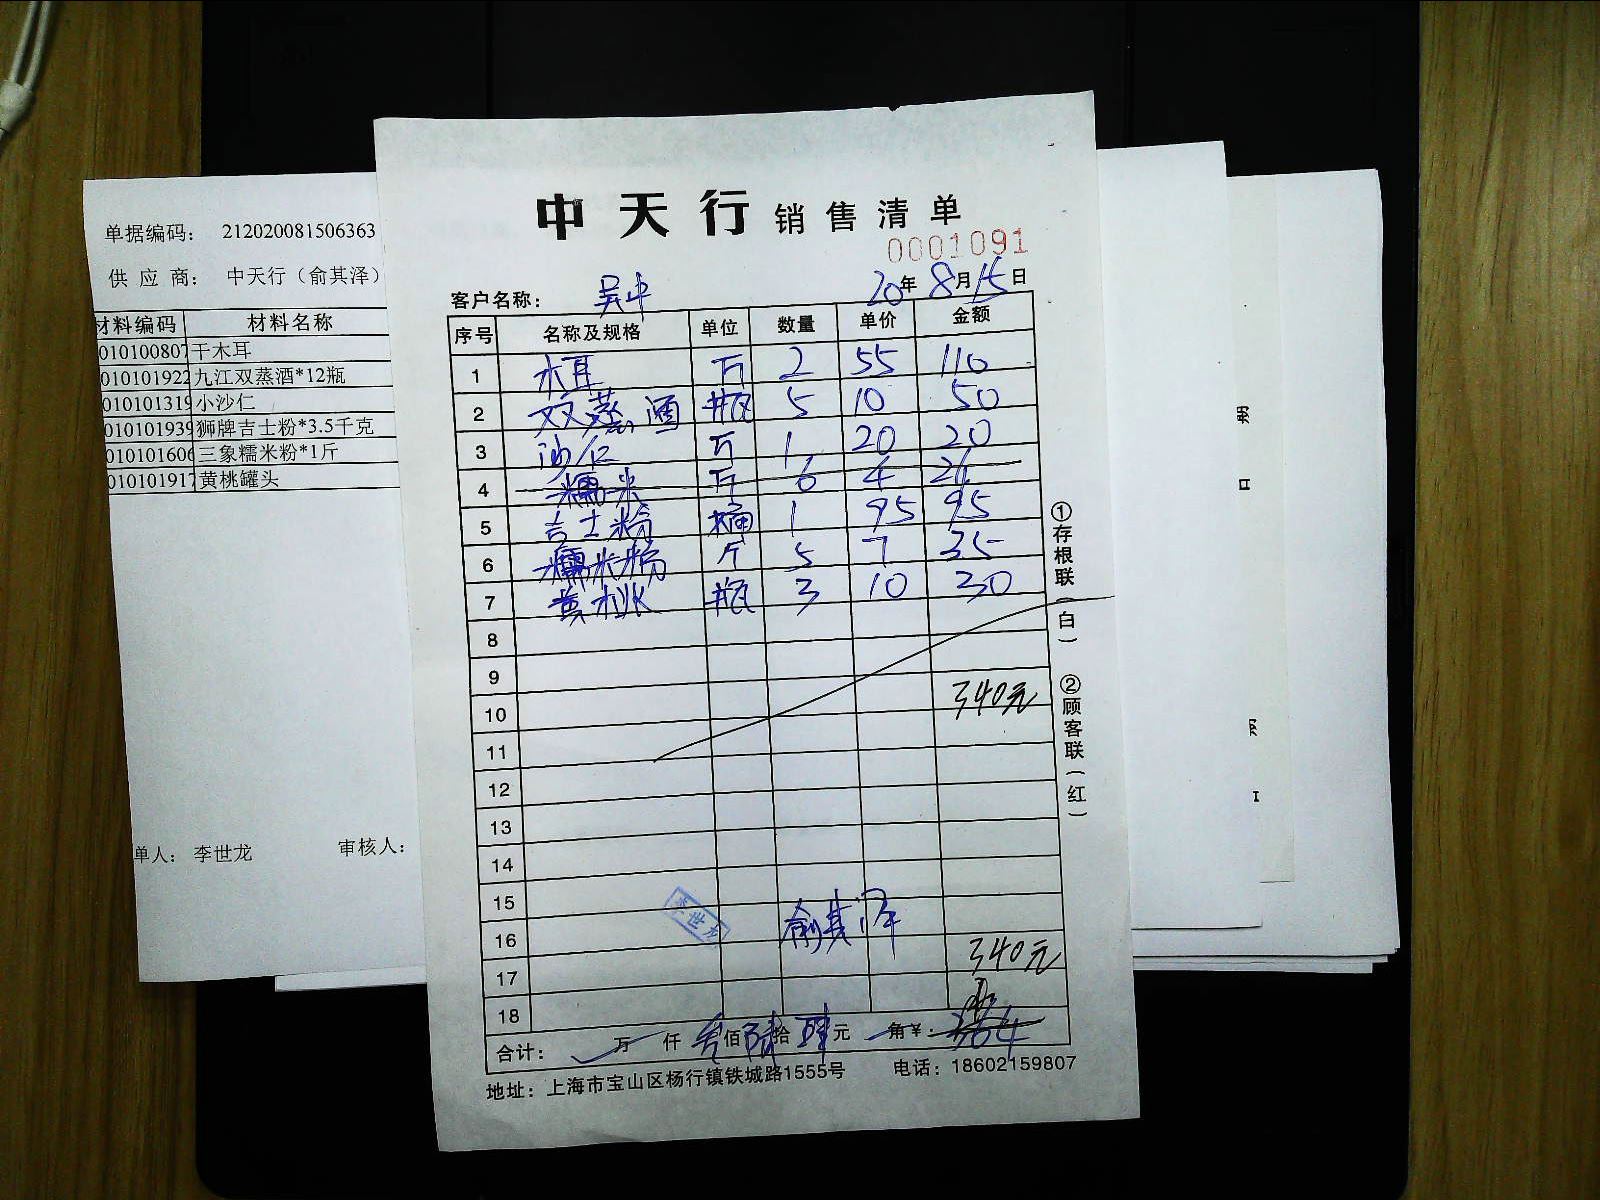 单据编码： 212020081506363
供 应 商： 中天行（俞其泽）
材料编码 材料名称
010100807 干木耳
010101922 九江双蒸酒*12瓶
010101319 小沙仁
010101939 狮牌吉士粉*3.5千克
010101606 三象糯米粉*1斤
010101917 黄桃罐头
单人： 李世龙 审核人：
中天行 销售清单
0001091
客户名称： 吴中 20年 8月 15日
序号 名称及规格 单位 数量 单价 金额
1 木耳 斤 2 55 110
2 双蒸酒 瓶 5 10 50
3 沙仁 斤 1 20 20
4 糯米 斤 6 4 24
5 吉士粉 桶 1 95 95
6 糯米粉 斤 5 7 35
7 黄桃 瓶 3 10 30
8
9
10 340元
11
12
13
14
15
16 李世龙 俞其泽
17 340元
18
合计： 万 仟 叁佰 陆拾 肆元 角 ¥： 364
地址：上海市宝山区杨行镇铁城路1555号 电话：18602159807
①存根联（白） ②顾客联（红）